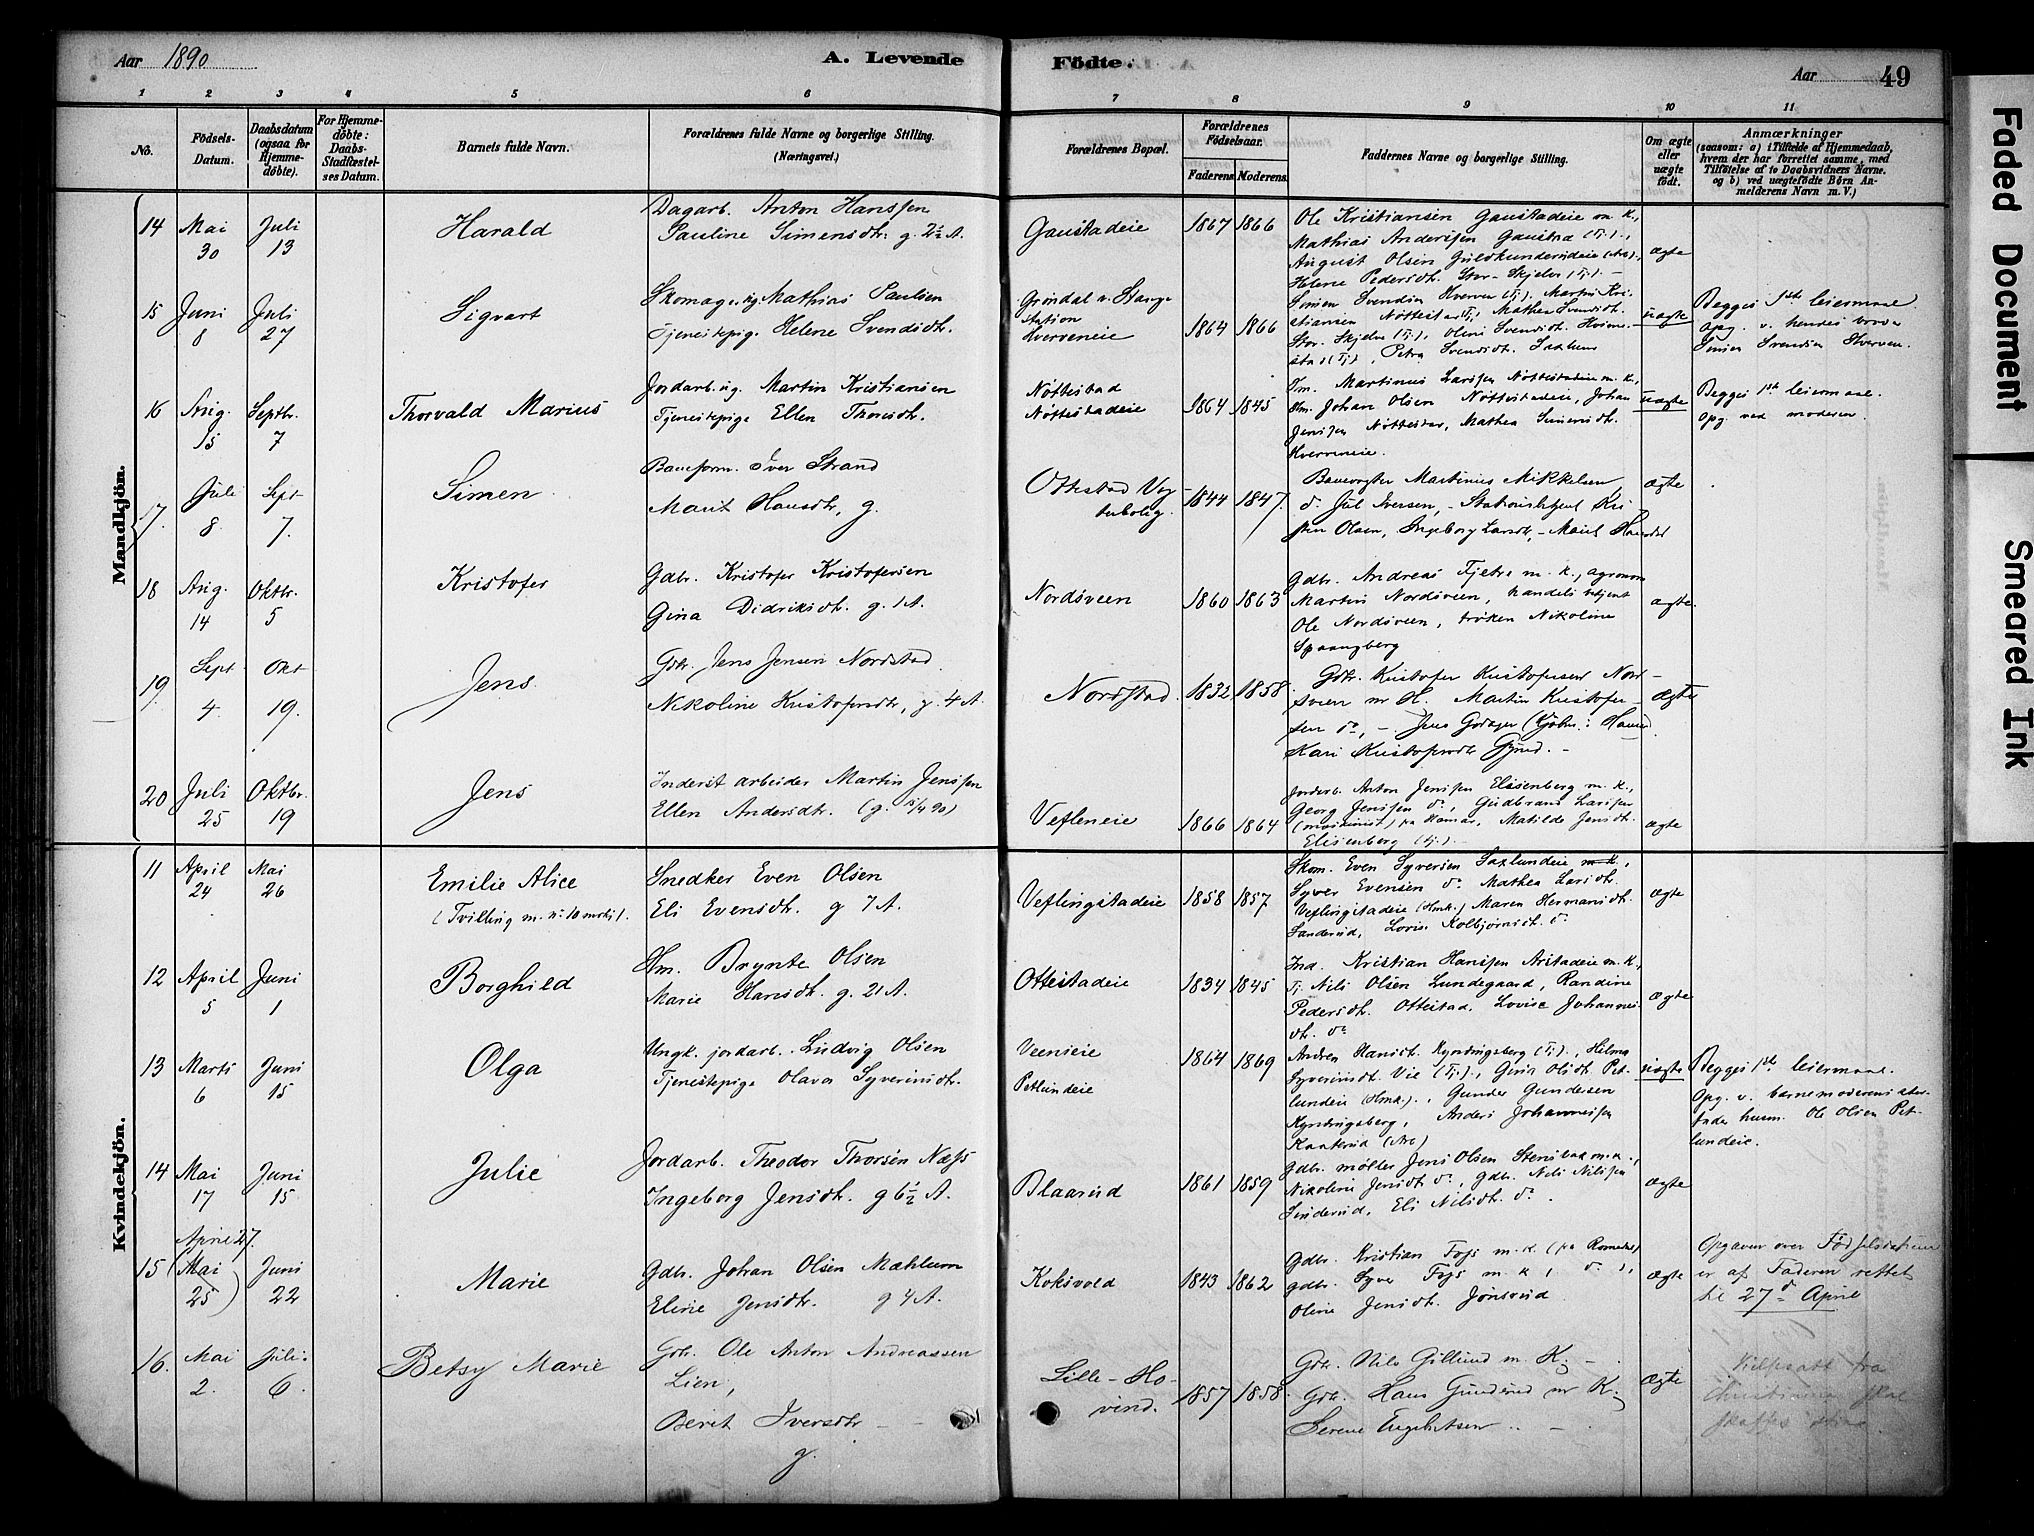 Aar 1890
A. Levende Födte.
Aar 49
1 2 3 4 5 6 7 8 9 10 11
No.
Födsels-Datum.
Daabsdatum (ogsaa for Hjemme-döbte).
For Hjemme-döbte: Daabs-Stadfæstel-ses Datum.
Barnets fulde Navn.
Forældrenes fulde Navne og borgerlige Stilling.
(Næringsvei.)
Forældrenes Bopæl.
Forældrenes Födselsaar.
Faderens Moderens.
Faddernes Navne og borgerlige Stilling.
Om ægte eller uægte födt.
Anmærkninger
(saasom: a) i Tilfælde af Hjemmedaab, hvem der har forrettet samme, med Tilföielse af to Daabsvidners Navne. og b) ved uægtefödte Börn An-melderens Navn m. V.)
Mandkjön.
14 Mai 30 Juli 13 Harald
Dagarb. Anton Hanssen
Pauline Simensdtr. g. 2½ A.
Gaustadeie 1867 1866
Ole Kristiansen Gaustadeie m. K.,
Mathias Anderssen Gaustad (Tj.),
August Olsen
Helene Pedersdtr. Stor-Skjelve (Tj.). -
ægte
15 Juni 8 Juli 27 Sigvart
Skomager Mathias Paulsen
Tjenestepige Helene Svendsdtr.
Grøndal v. Stange station
Hverveneie 1864 1866
Simen Svendsen Hverven (Tj.), Martin Kri-
stiansen Nøttestad (Tj.), Mathea Svendsdtr.
Stor-Skjelve (Tj.), Oline Svendsdtr.
(Tj.), Petra Svendsdtr. Saxlund
uægte
Begges 1ste leiermaal
opg. v. hendes broder
Simen Svendsen Hverven.
16 Aug. 15 Septbr. 7 Thorvald Marius
Jordarb. ug. Martin Kristiansen
Tjenestepige Ellen Thorsdtr.
Nøttestad
Nøttestadeie 1864 1845
Martinus Larssen Nøttestadeie m. K.,
Hm. Johan Olsen Nøttestadeie, Johan
Jenssen Nøttestad, Mathea Simensdtr.
Hverveneie.
uægte
Begges 1ste leiermaal.
Opg. ved moderen.
17. Juli 8. Sept 7. Simen
Baneform. Iver Strand
Marit Hansdtr, g.
Ottestad Vog-
terbolig. 1844 1847.
Banevogter Martinus Mikkelsen,
do Jul Iversen, - Stationsbetjent Kri-
sten Olsen, Ingeborg Larsdtr, - Marit Hansdtr
ægte
18 Aug. 14 Oktbr. 5 Kristofer
Gdbr. Kristofer Kristofersen
Gina Didriksdtr. g. 1 A.
Nordsveen 1860 1863
Gdbr. Andreas Tjetre m. K., agronom
Martin Nordsveen, handelsbetjent
Ole Nordsveen, frøken Nikoline
Spaangberg
ægte.
19. Sept 4. Okt 19. Jens
Gbr. Jens Jensen Nordstad
Nikoline Kristofersdtr, g. 4 A.
Nordstad. 1832 1858.
Gdbr. Kristofer Kristofersen Nord-
sveen m. K. Martin Kristofer-
sen do, - Jens Godager
Kari Kristofersdtr
ægte
20 Juli 25 Oktbr. 19 Jens
Inderst arbeider Martin Jenssen
Ellen Andersdtr. (g. 5/4 90)
Vefleneie 1866 1864
Jordarb. Anton Jenssen Elisenberg m. K.,
Georg Jenssen do, Gudbrand Larssen
(maskinist) fra Hamar, Matilde Jensdtr.
Elisenberg (Tj.).
ægte
Kvindekjön.
11 April 24 Mai 26 Emilie Alice
(Tvilling m. no 10 mrkj).
Snedker Even Olsen
Eli Evensdtr. g 7 A.
Veflingstadeie 1858 1857
Skom. Even Syversen Saxlundeie m. K.,
Syver Evensen do. Mathea Larsdtr.
Veflingstadeie (Hmk.) Maren Hermansdtr.
Sanderud, Lovise Kolbjørnsdtr. do
ægte
12 April 5 Juni 1 Borghild
Hm. Brynte Olsen
Marie Hansdtr. g. 21 A.
Ottestadeie 1834 1845
Ind. Kristian Hanssen Arstadeie m. K.,
Tj. Nils Olsen Lundegaard, Randine
Pedersdtr. Ottestad, Lovise Johannes-
dtr. do
ægte
13 Marts 6 Juni 15 Olga
Ungk. jordarb. Ludvig Olsen
Tjenestepige Olava Syverinsdtr.
Veeneie
Petlundeie 1864 1869
Andrea Hansdt. Kyndringsberg (Tj.), Helma
Syverinsdt. Vie (Tj.), Gina Olsdt. Pet-
lundeie (Hmk.), Gunder Gundersen
Kyndringsberg, Anders Johannessen
Kaaterud (Arb)
uægte
Begges 1ste leiermaal.
Opg. v. barnemoderens ste-
fader husm. Ole Olsen Pet-
lundeie.
14 Mai 17 Juni 15 Julie
Jordarb. Theodor Thorsen Næss
Ingeborg Jensdtr. g 6½ A.
Blaarud 1861 1859
Gdbr. møller Jens Olsen Stensbak m. K.,
Nikoline Jensdt do, gdbr. Nils Nilssen
Sinderud, Eli Nilsdt. do.
ægte
15 April 27. (Mai 25) Juni 22 Marie
Gdbr. Johan Olsen Mæhlum
Eline Jensdtr. g 4 A.
Koksvold 1843 1862
Gdbr. Kristian Foss m. K. (fra Romedal)
gdbr. Syver Foss m. K. ( do ),
Oline Jensdt. Jønsrud
ægte
Opgaven over Fødselsdatum
er af Faderen rettet
til 27de April
16. Mai 2. Juli 6. Betsy Marie
Gbr. Ole Anton Andreassen
Lien,
Beret Iversdtr
g.
Lille-Ho-
vind. 1857 1858.
Gbr. Nils Gillund m. K; -
Gbr. Hans Gunderud m K;
Serene Engebretsen
ægte
fra
Christiania skal
skaffes
Faded Document
Smeared Ink